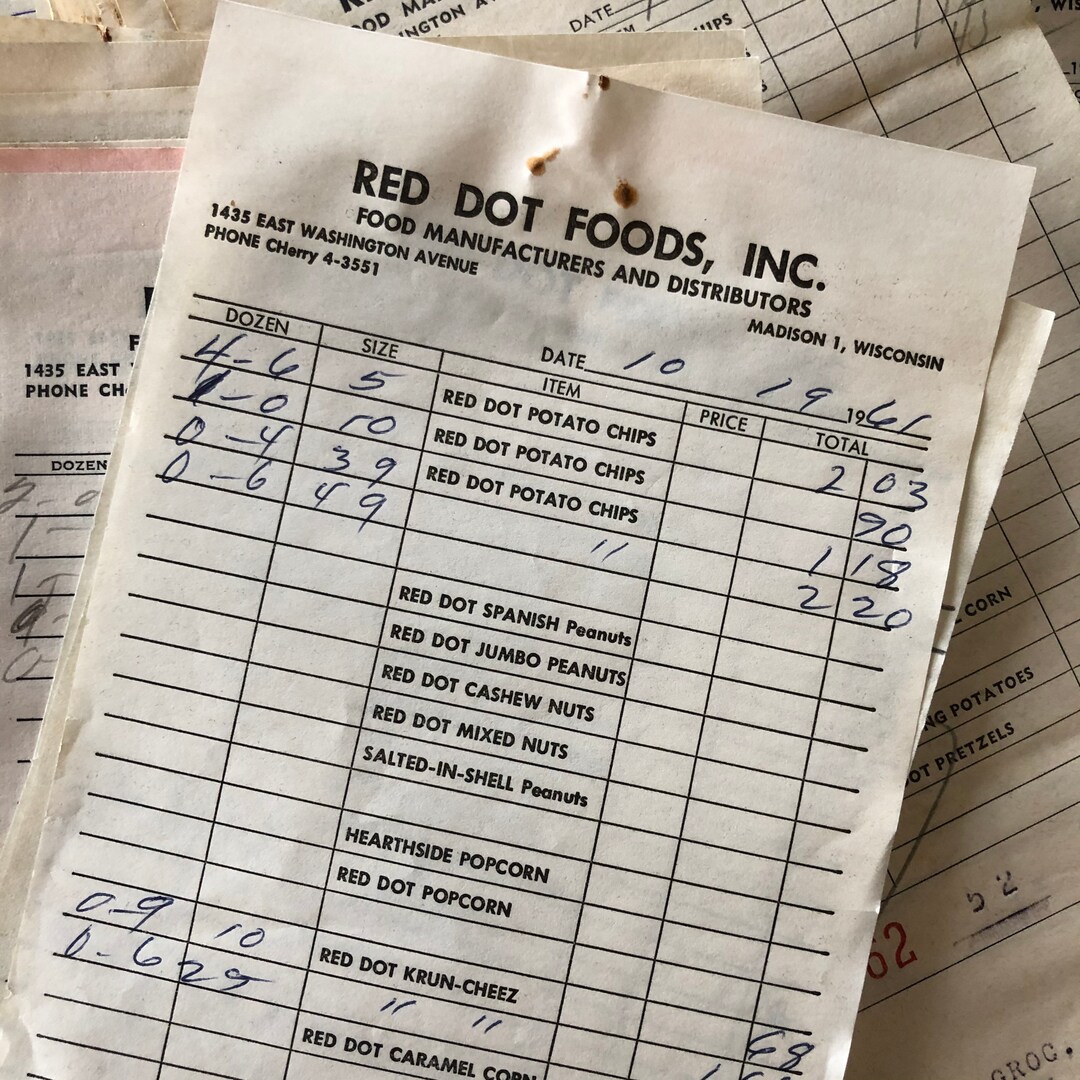 RED DOT FOODS, INC.
FOOD MANUFACTURERS AND DISTRIBUTORS
1435 EAST WASHINGTON AVENUE
PHONE CHerry 4-3551
MADISON 1, WISCONSIN
DATE 10 19 1961
DOZEN SIZE ITEM PRICE TOTAL
4-6 5 RED DOT POTATO CHIPS 2 03
1-0 10 RED DOT POTATO CHIPS 90
0-4 39 RED DOT POTATO CHIPS 1 18
0-6 49 " 2 20
RED DOT SPANISH Peanuts
RED DOT JUMBO PEANUTS
RED DOT CASHEW NUTS
RED DOT MIXED NUTS
SALTED-IN-SHELL Peanuts
HEARTHSIDE POPCORN
RED DOT POPCORN
0-9 10 RED DOT KRUN-CHEEZ 68
0-6 29 " "
RED DOT CARAMEL CORN
1435 EAST
PHONE CH
DOZEN
DATE
CORN
NG POTATOES
OT PRETZELS
62
52
GROG.